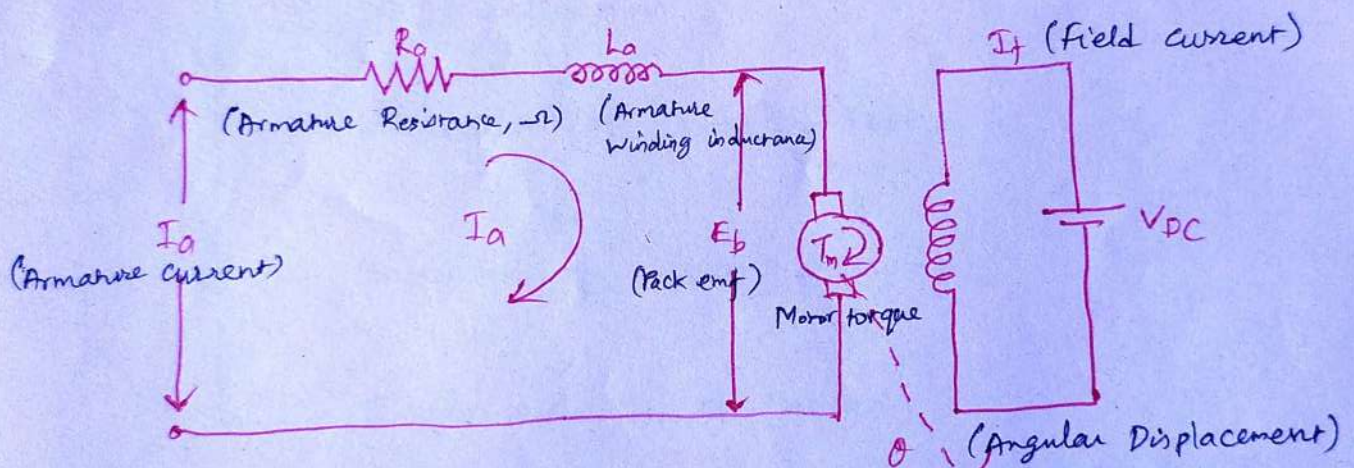 Ra
La
If (Field current)
(Armature Resistance, Ω)
(Armature
winding inductana)
Ia
(Armature current)
Ia
Eb
(Pack emf)
Tm
Motor torque
VDC
θ
(Angular Displacement)